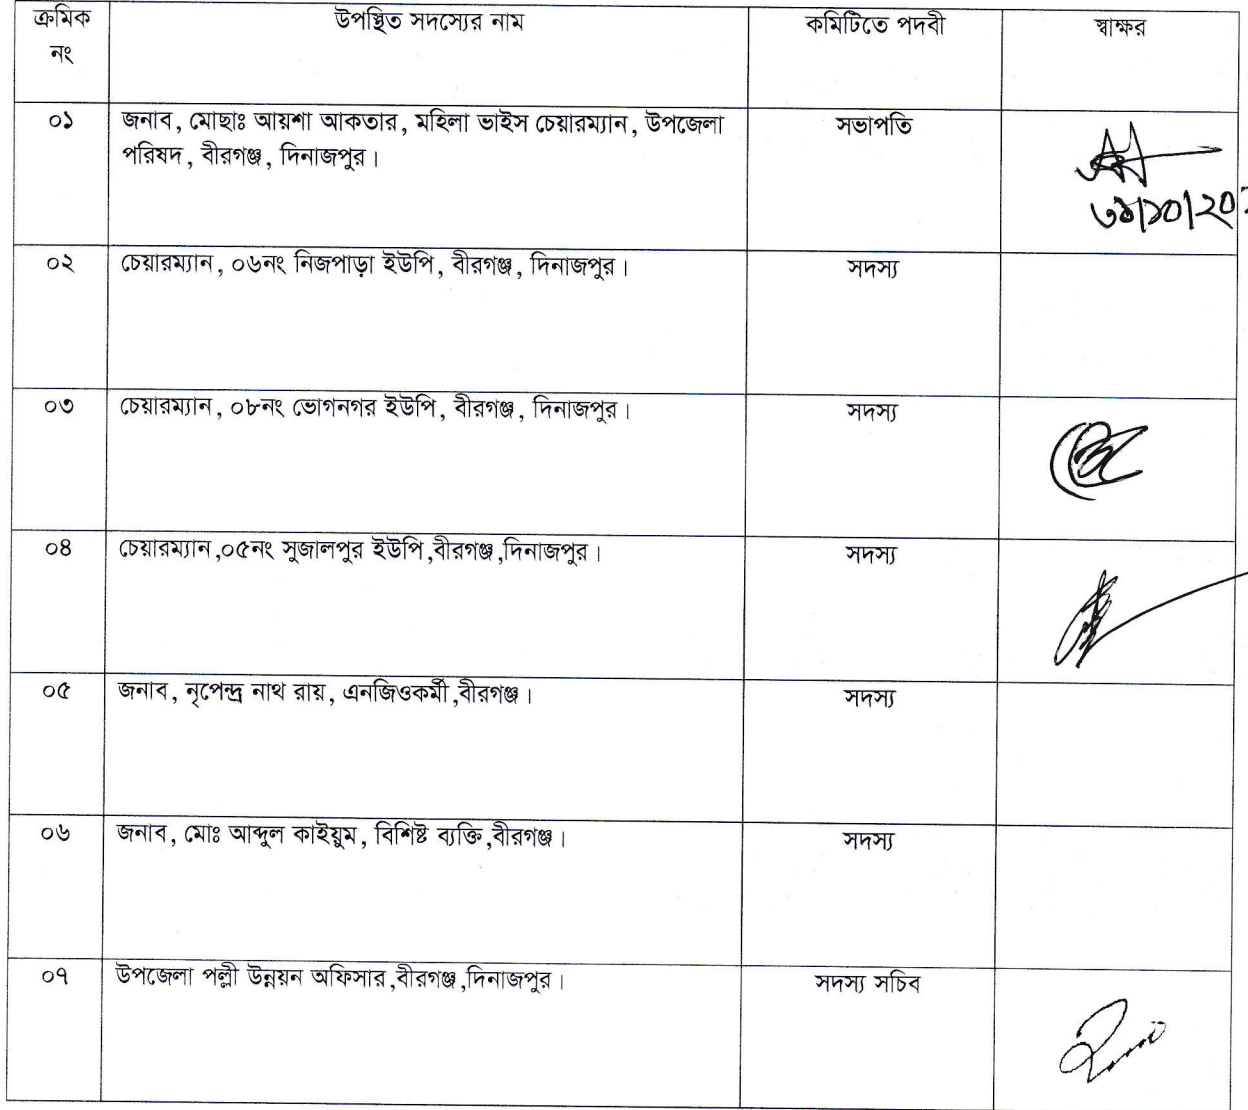 ক্রমিক নং	উপস্থিত সদস্যের নাম	কমিটিতে পদবী	স্বাক্ষর
০১	জনাব, মোছাঃ আয়শা আকতার, মহিলা ভাইস চেয়ারম্যান, উপজেলা	সভাপতি
পরিষদ, বীরগঞ্জ, দিনাজপুর।
০২	চেয়ারম্যান, ০৬নং নিজপাড়া ইউপি, বীরগঞ্জ, দিনাজপুর।	সদস্য
০৩	চেয়ারম্যান, ০৮নং ভোগনগর ইউপি, বীরগঞ্জ, দিনাজপুর।	সদস্য
০৪	চেয়ারম্যান,০৫নং সুজালপুর ইউপি,বীরগঞ্জ,দিনাজপুর।	সদস্য
০৫	জনাব, নৃপেন্দ্র নাথ রায়, এনজিওকর্মী,বীরগঞ্জ।	সদস্য
০৬	জনাব, মোঃ আব্দুল কাইয়ুম, বিশিষ্ট ব্যক্তি,বীরগঞ্জ।	সদস্য
০৭	উপজেলা পল্লী উন্নয়ন অফিসার,বীরগঞ্জ,দিনাজপুর।	সদস্য সচিব